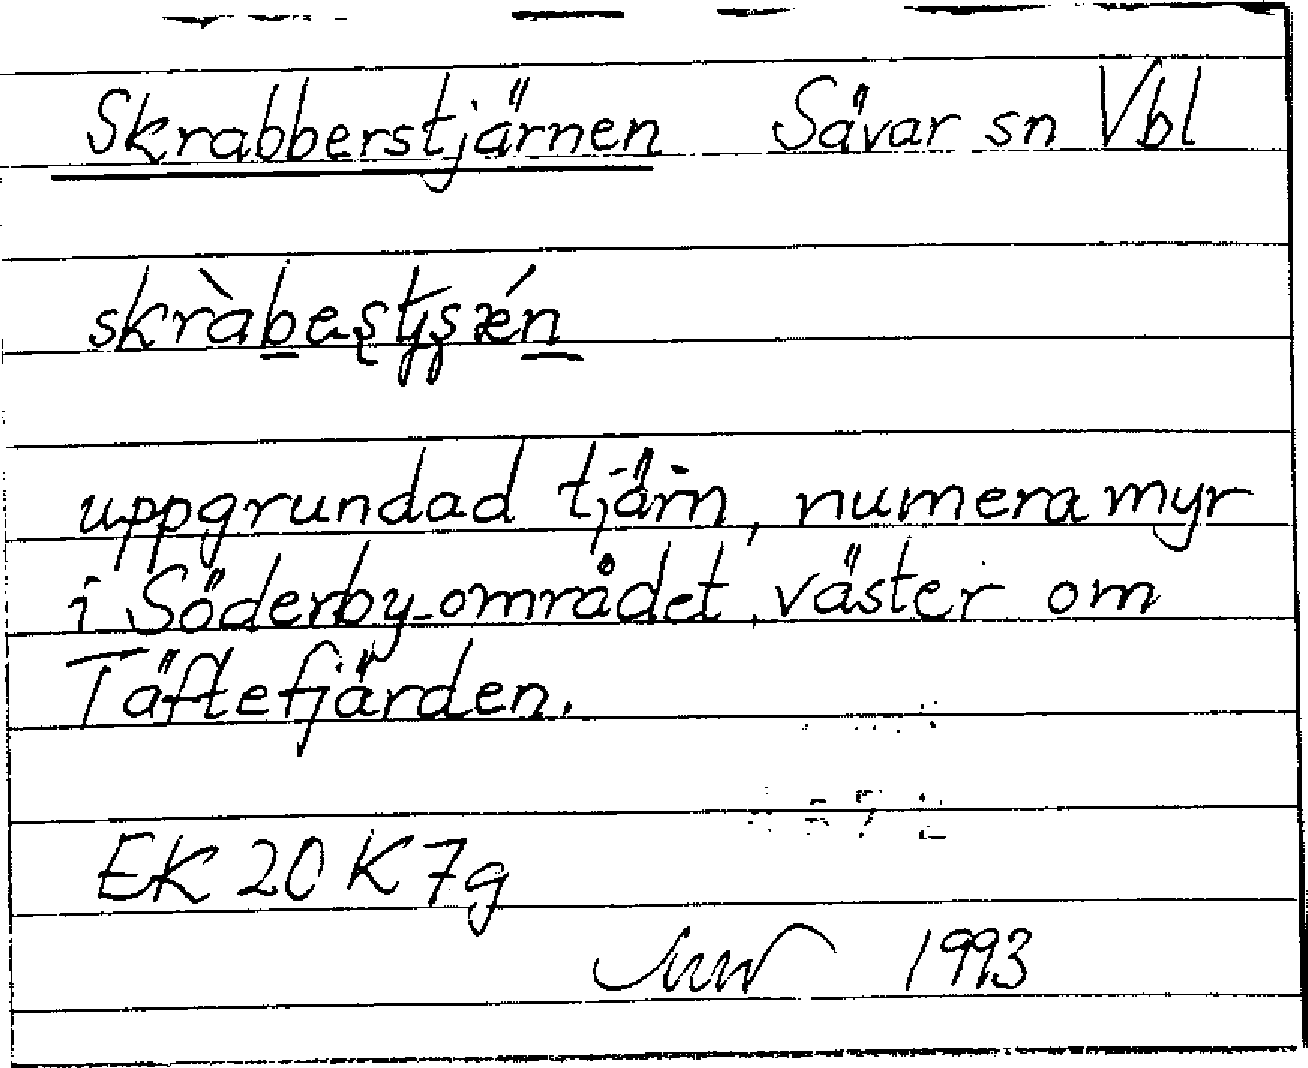 Skrabberstjärnen Sävar sn Vbl
uppgrundad tjärn, numera myr
i Söderby-området, väster om
Täftefjärden.
EK 20 K 7g
1993